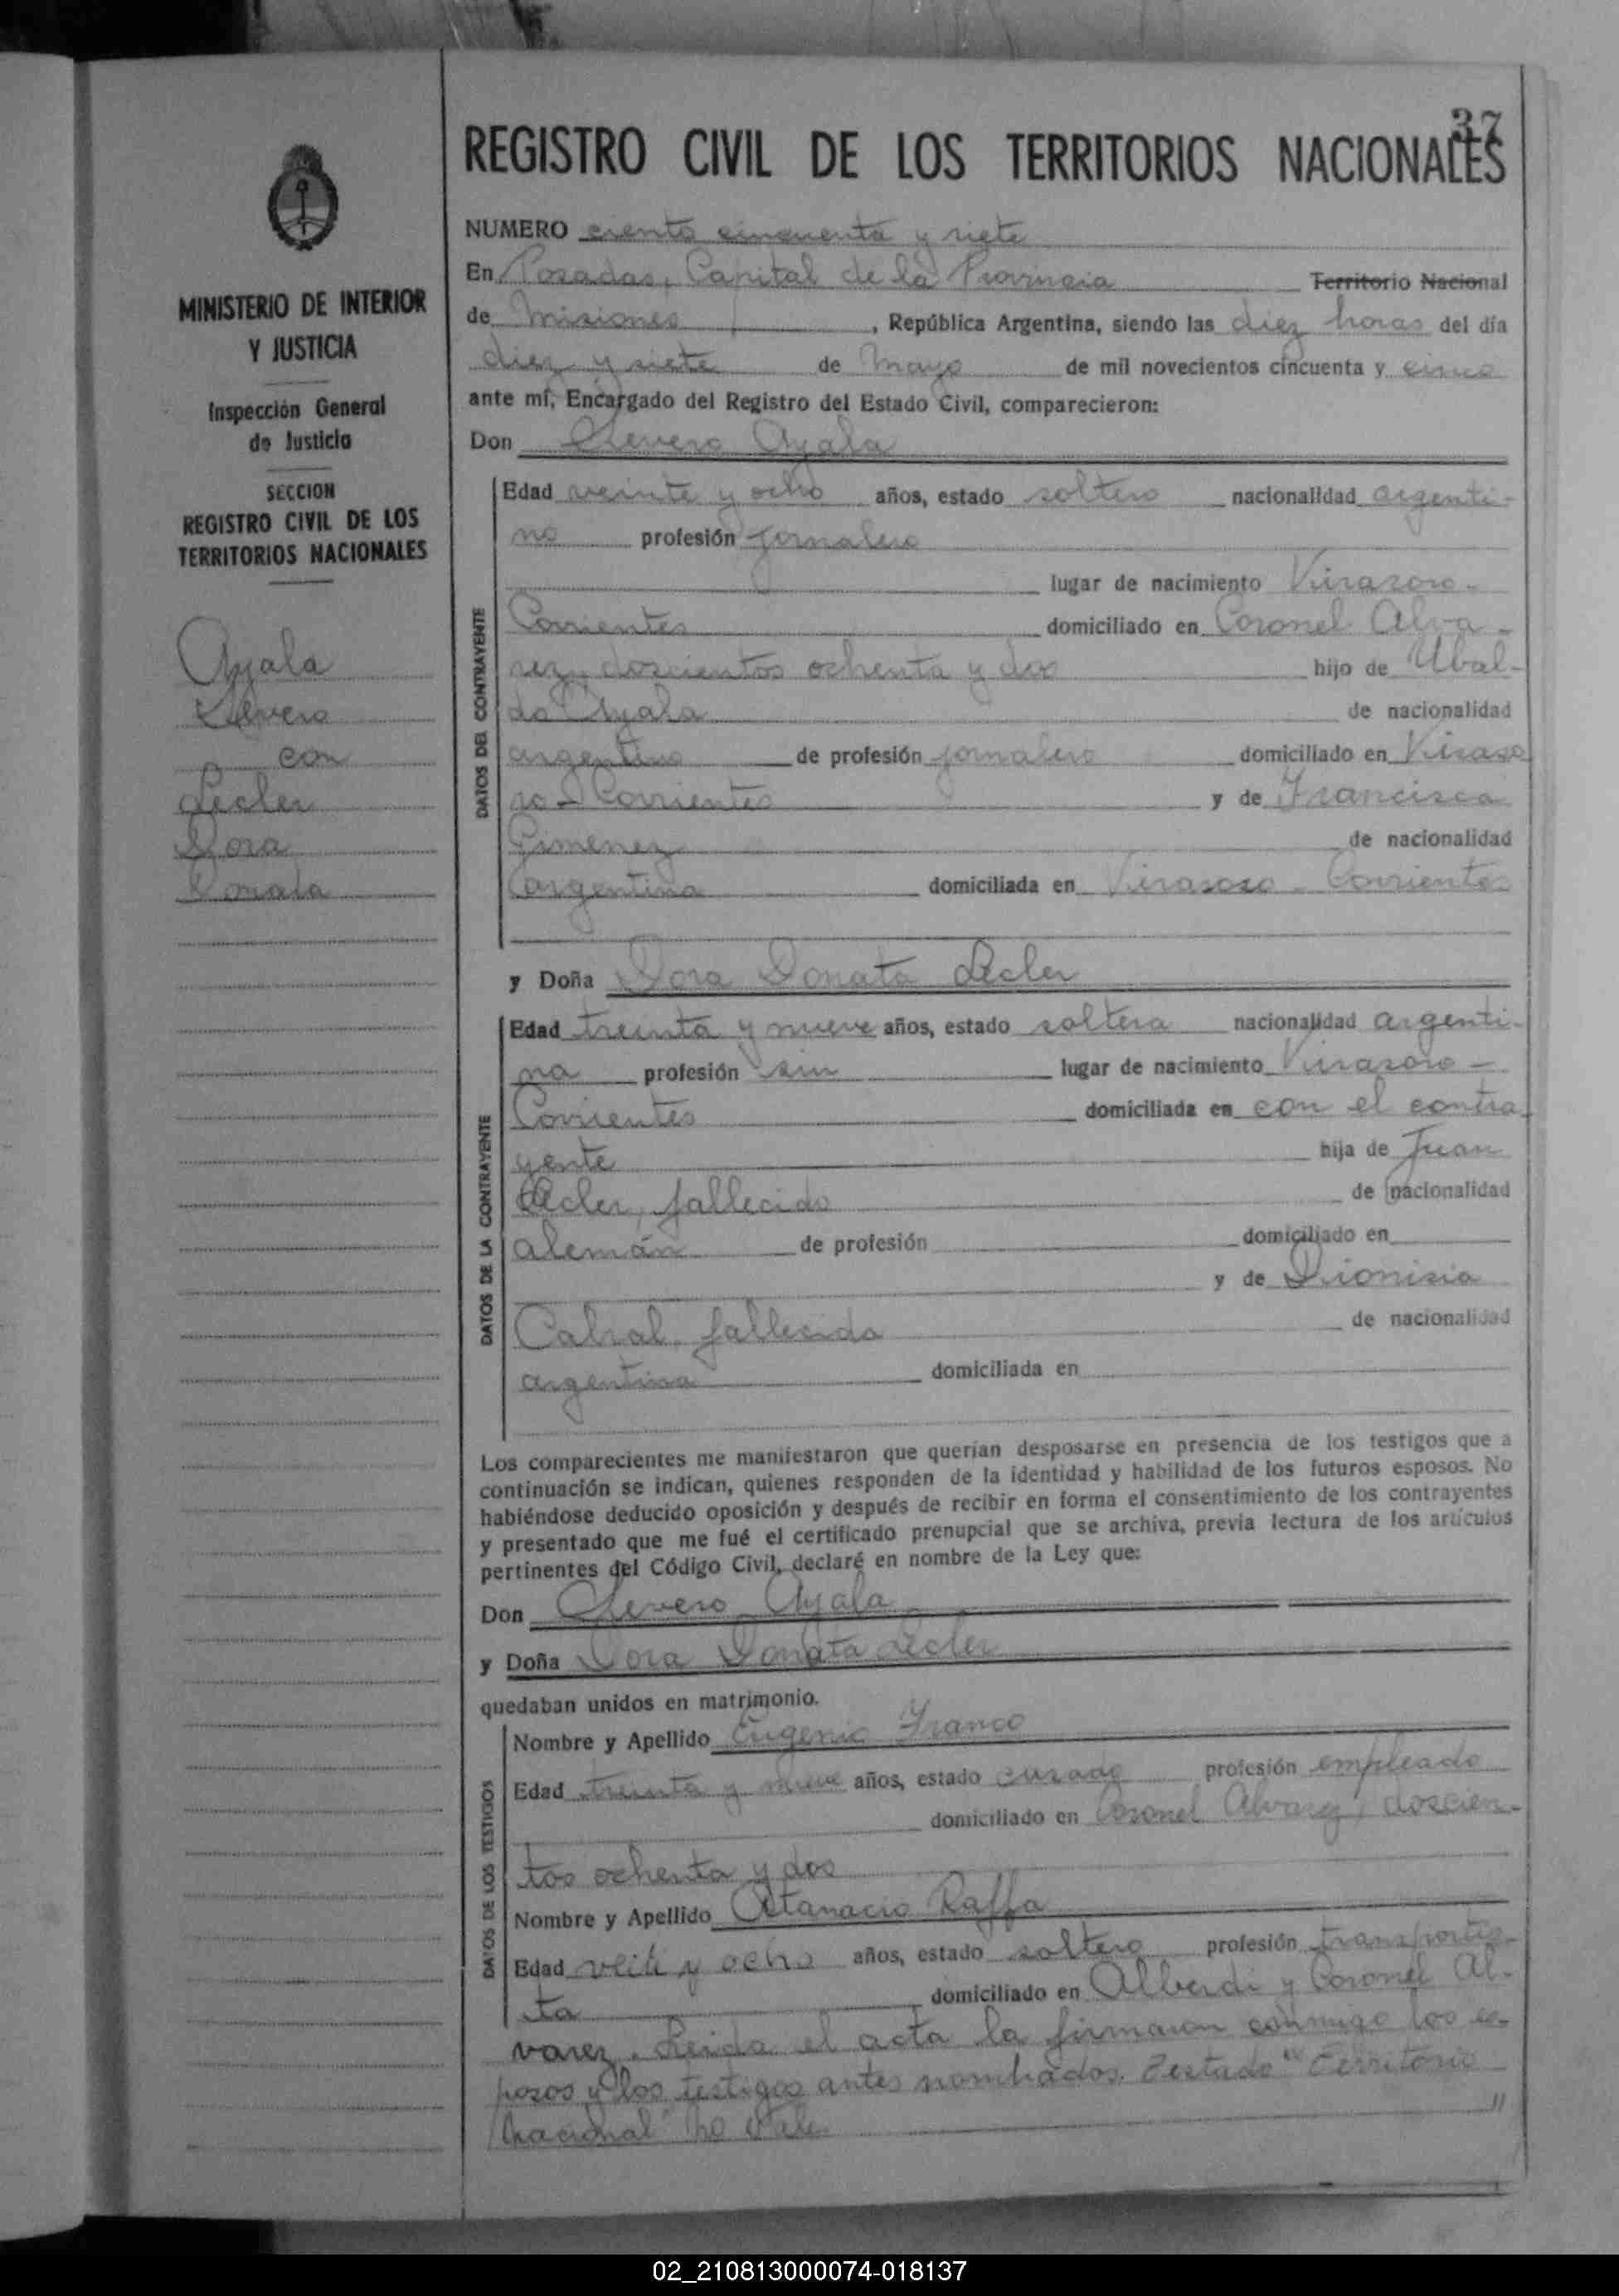 37
REGISTRO CIVIL DE LOS TERRITORIOS NACIONALES
MINISTERIO DE INTERIOR
Y JUSTICIA
Inspección General
de Justicia
SECCION
REGISTRO CIVIL DE LOS
TERRITORIOS NACIONALES
Ayala
Severo
con
Lecler
Dora
Donata
NUMERO ciento cincuenta y siete
En Posadas, Capital de la Provincia Territorio Nacional
de Misiones, República Argentina, siendo las diez horas del día
diez y siete de Mayo de mil novecientos cincuenta y cinco
ante mí, Encargado del Registro del Estado Civil, comparecieron:
Don Severo Ayala
DATOS DEL CONTRAYENTE
Edad veinte y ocho años, estado soltero nacionalidad argenti-
no profesión jornalero
lugar de nacimiento Virasoro-
Corrientes domiciliado en Coronel Alva-
rez, doscientos ochenta y dos hijo de Ubal-
do Ayala de nacionalidad
argentino de profesión jornalero domiciliado en Viraso
ro - Corrientes y de Francisca
Gimenez de nacionalidad
argentina domiciliada en Virasoro - Corrientes
y Doña Dora Donata Lecler
DATOS DE LA CONTRAYENTE
Edad treinta y nueve años, estado soltera nacionalidad argenti-
na profesión sin lugar de nacimiento Virasoro -
Corrientes domiciliada en con el contra-
yente hija de Juan
Lecler, fallecido de nacionalidad
alemán de profesión domiciliado en
y de Dionisia
Cabral, fallecida de nacionalidad
argentina domiciliada en
Los comparecientes me manifestaron que querían desposarse en presencia de los testigos que a
continuación se indican, quienes responden de la identidad y habilidad de los futuros esposos. No
habiéndose deducido oposición y después de recibir en forma el consentimiento de los contrayentes
y presentado que me fué el certificado prenupcial que se archiva, previa lectura de los artículos
pertinentes del Código Civil, declaré en nombre de la Ley que:
Don Severo Ayala
y Doña Dora Donata Lecler
quedaban unidos en matrimonio.
DATOS DE LOS TESTIGOS
Nombre y Apellido Eugenio Franco
Edad treinta y nueve años, estado casado profesión empleado
domiciliado en Coronel Alvarez, doscien-
tos ochenta y dos
Nombre y Apellido Atanacio Raffa
Edad veite y ocho años, estado soltero profesión transportis-
ta domiciliado en Alberdi y Coronel Al-
varez. Leida el acta la firmaron conmigo los es-
posos y los testigos antes nombrados. Testado "Territorio
Nacional" no vale.
02_210813000074-018137